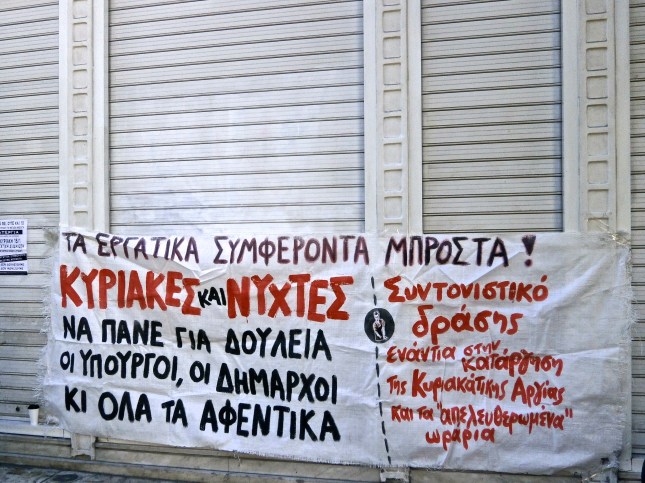 ΤΑ ΕΡΓΑΤΙΚΑ ΣΥΜΦΕΡΟΝΤΑ ΜΠΡΟΣΤΑ!
ΚΥΡΙΑΚΕΣ ΚΑΙ ΝΥΧΤΕΣ
ΝΑ ΠΑΝΕ ΓΙΑ ΔΟΥΛΕΙΑ
ΟΙ ΥΠΟΥΡΓΟΙ, ΟΙ ΔΗΜΑΡΧΟΙ
ΚΙ ΟΛΑ ΤΑ ΑΦΕΝΤΙΚΑ
Συντονιστικό
δράσης
ενάντια στην
κατάργηση
της Κυριακάτικης Αργίας
και τα "απελευθερωμένα"
ωράρια